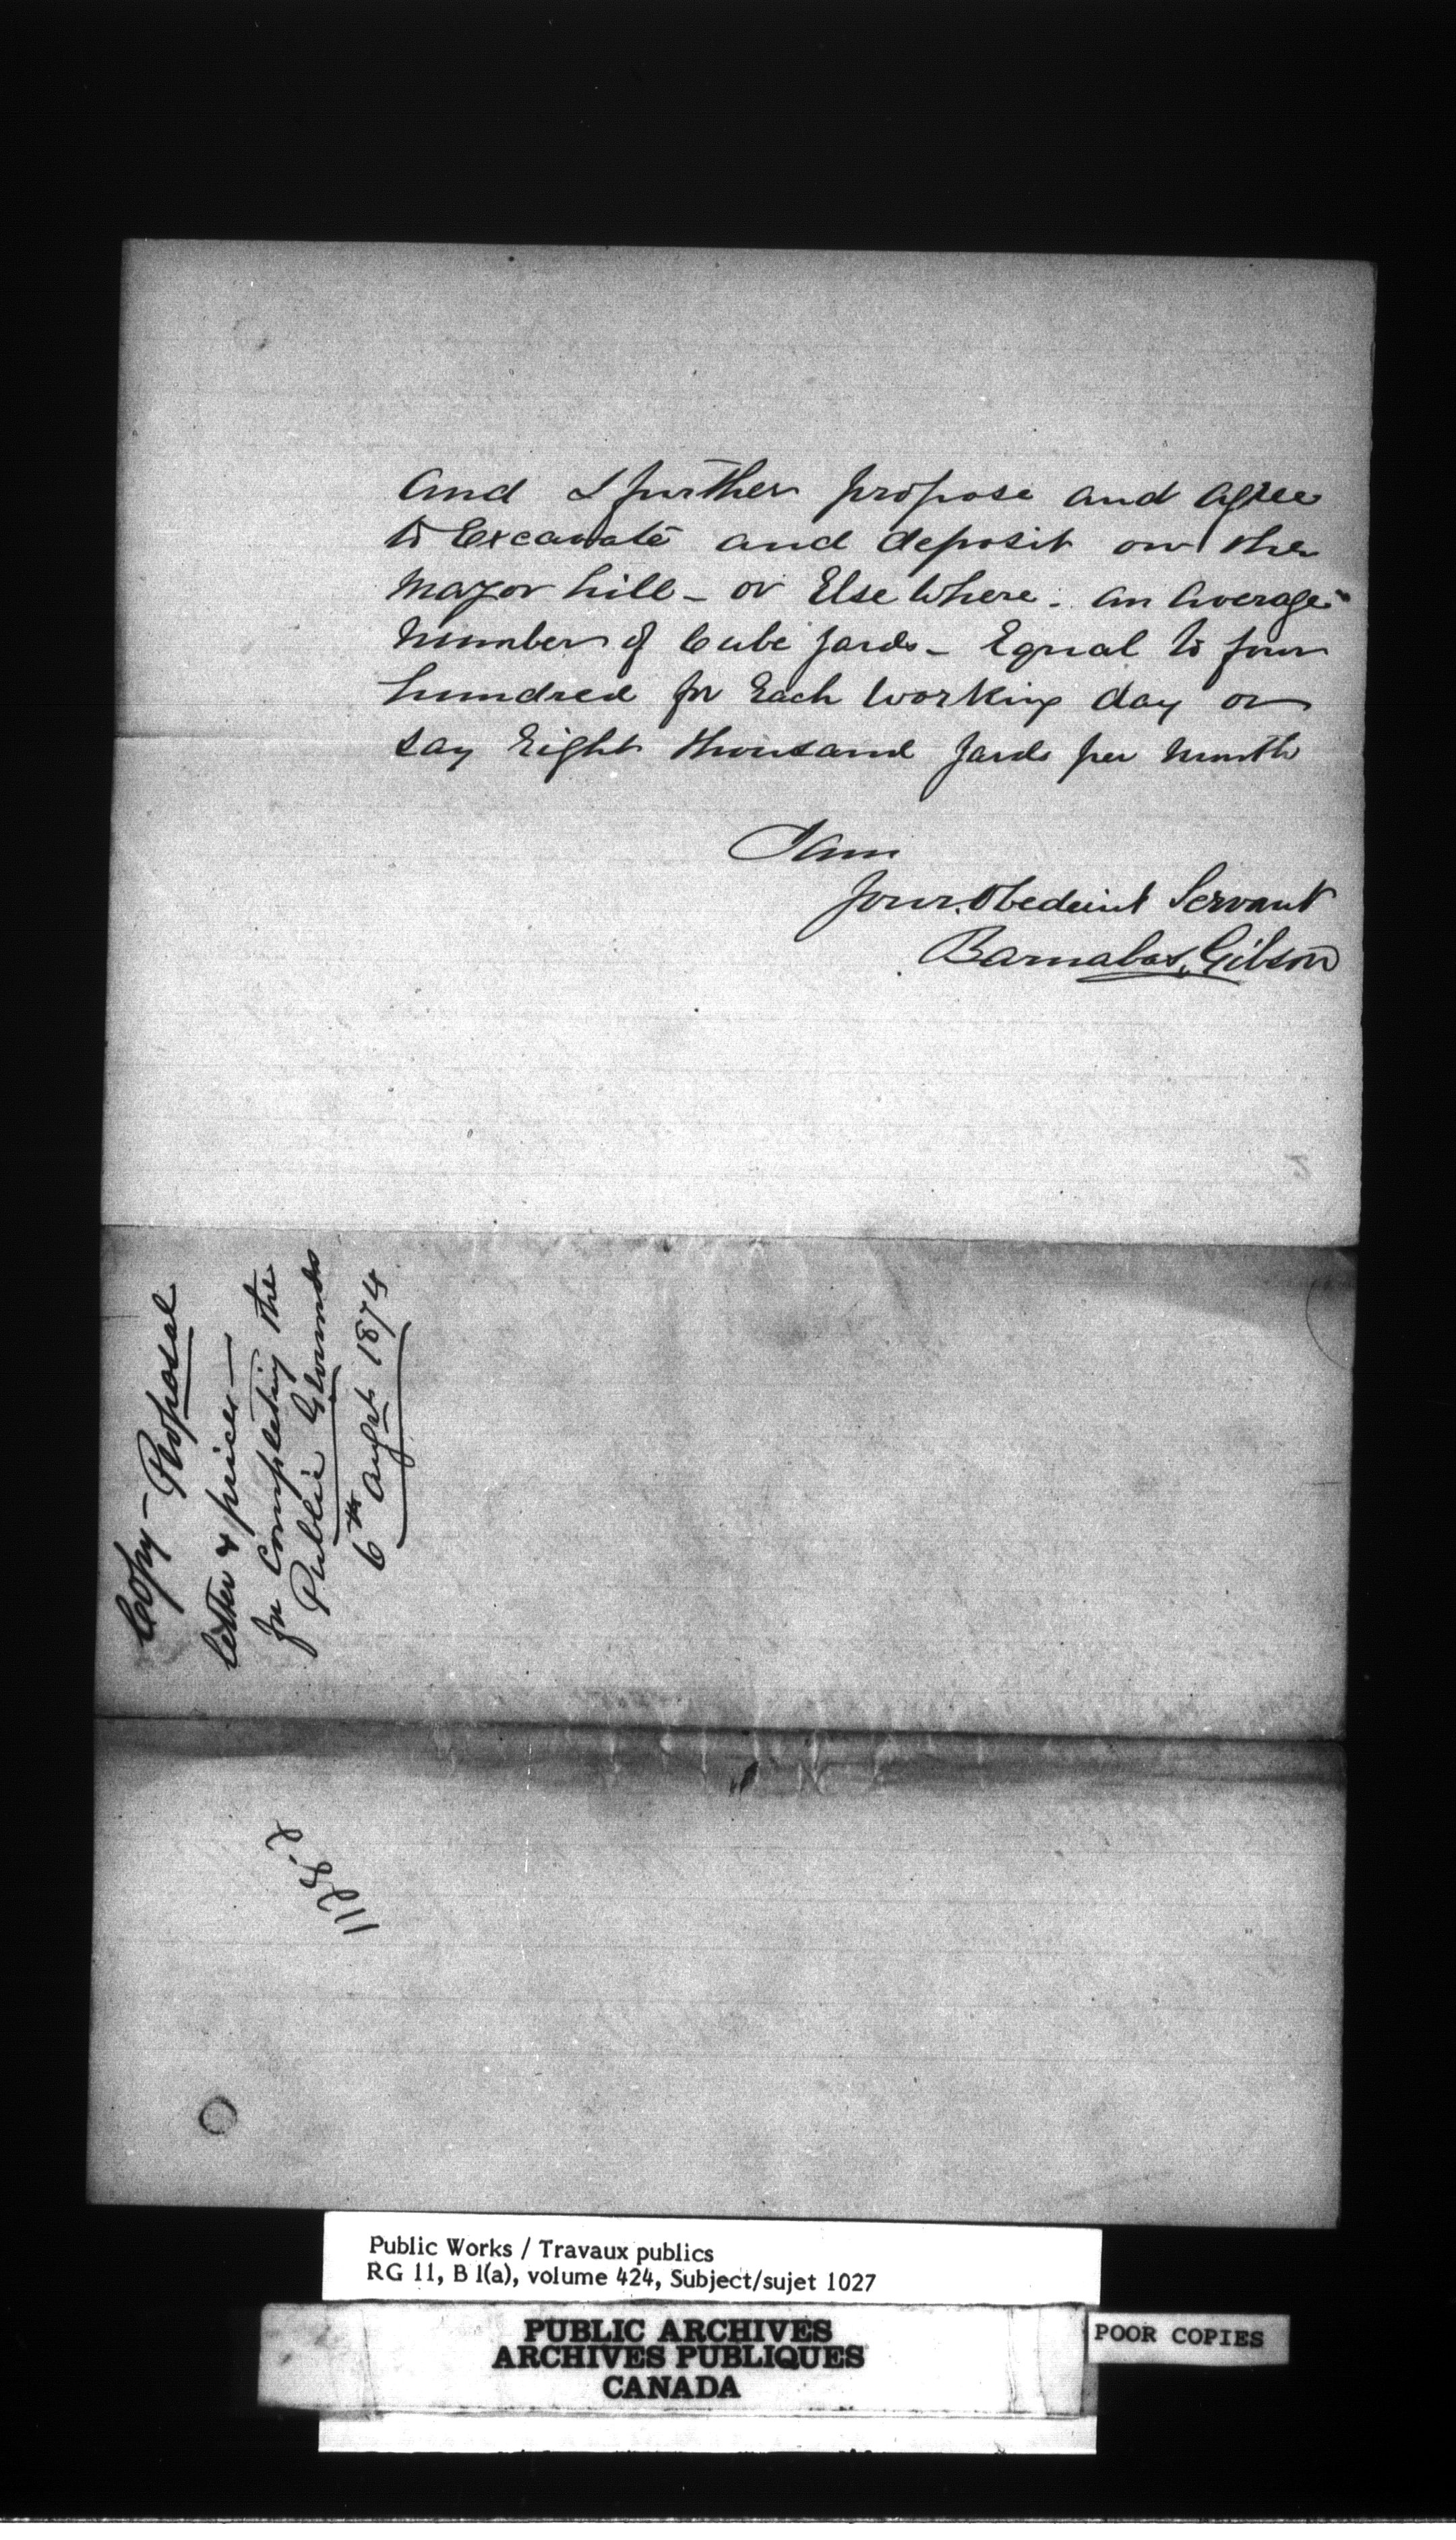 And I further propose and agree
to Excavate and deposit on the
Major hill - or Else Where. an Average
Number of Cube Yards - Equal to four
hundred for Each Working day or
say Eight thousand Yards per Month
I am
Your Obedeint Servant
Barnabas Gibson
Copy - Proposal
letter & prices -
for Completing the
Public Grounds
6th Augst 1874
Public Works / Travaux publics
RG 11, B 1(a), volume 424, Subject/sujet 1027
PUBLIC ARCHIVES
ARCHIVES PUBLIQUES
CANADA
POOR COPIES